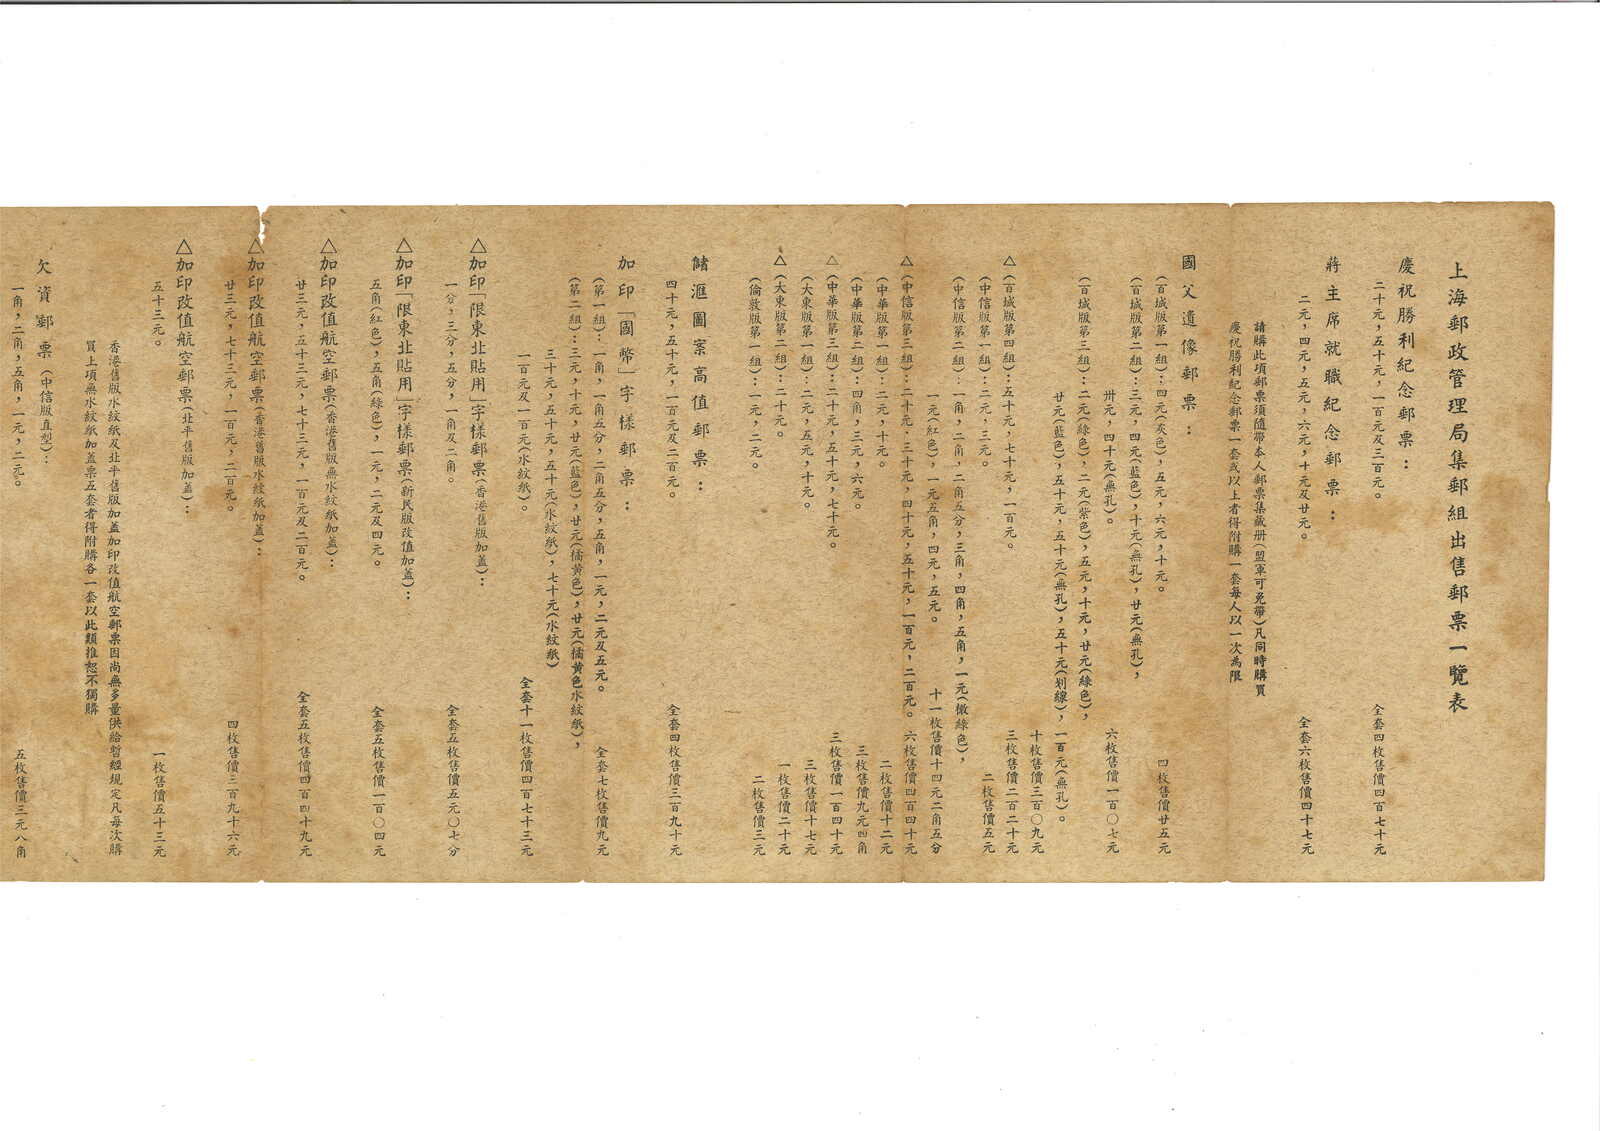 上海郵政管理局集郵組出售郵票一覽表
慶祝勝利紀念郵票：
二十元，五十元，一百元及三百元。 全套四枚售價四百七十元
蔣主席就職紀念郵票：
二元，四元，五元，六元，十元及廿元。 全套六枚售價四十七元
請購此項郵票須隨帶本人郵票集藏册(盟軍可免帶)凡同時購買
慶祝勝利紀念郵票一套或以上者得附購一套每人以一次為限
國父遺像郵票：
(百城版第一組)：四元(灰色)，五元，六元，十元。 四枚售價廿五元
(百城版第二組)：三元，四元(藍色)，十元(無孔)，廿元(無孔)，
卅元，四十元(無孔)。 六枚售價一百〇七元
(百城版第三組)：二元(綠色)，二元(紫色)，五元，十元，廿元(綠色)，
廿元(藍色)，五十元，五十元(無孔)，五十元(划線)，一百元(無孔)。
十枚售價三百〇九元
△(百城版第四組)：五十元，七十元，一百元。 三枚售價二百二十元
(中信版第一組)：二元，三元。 二枚售價五元
(中信版第二組)：一角，二角，二角五分，三角，四角，五角，一元(橄綠色)，
一元(紅色)，一元五角，四元，五元。 十一枚售價十四元二角五分
△(中信版第三組)：二十元，三十元，四十元，五十元，一百元，二百元。 六枚售價四百四十元
(中華版第一組)：二元，十元。 二枚售價十二元
(中華版第二組)：四角，三元，六元。 三枚售價九元四角
△(中華版第三組)：二十元，五十元，七十元。 三枚售價一百四十元
(大東版第一組)：二元，五元，十元。 三枚售價十七元
△(大東版第二組)：二十元。 一枚售價二十元
(倫敦版第一組)：一元，二元。 二枚售價三元
儲滙圖案高值郵票：
四十元，五十元，一百元及二百元。 全套四枚售價三百九十元
加印「國幣」字樣郵票：
(第一組)：一角，一角五分，二角五分，五角，一元，二元及五元。 全套七枚售價九元
(第二組)：三元，十元，廿元(藍色)，廿元(橘黃色)，廿元(橘黃色水紋紙)，
三十元，五十元，五十元(水紋紙)，七十元(水紋紙)
一百元及一百元(水紋紙)。 全套十一枚售價四百七十三元
△加印「限東北貼用」字樣郵票(香港舊版加蓋)：
一分，三分，五分，一角及二角。 全套五枚售價五元〇七分
△加印「限東北貼用」字樣郵票(新民版改值加蓋)：
五角(紅色)，五角(綠色)，一元，二元及四元。 全套五枚售價一百〇四元
△加印改值航空郵票(香港舊版無水紋紙加蓋)：
廿三元，五十三元，七十三元，一百元及二百元。 全套五枚售價四百四十九元
△加印改值航空郵票(香港舊版水紋紙加蓋)：
廿三元，七十三元，一百元，二百元。 四枚售價三百九十六元
△加印改值航空郵票(北平舊版加蓋)：
五十三元。 一枚售價五十三元
香港舊版水紋紙及北平舊版加蓋加印改值航空郵票因尚無多量供給暫經規定凡每次購
買上項無水紋紙加蓋票五套者得附購各一套以此類推恕不獨購
欠資郵票(中信版直型)：
一角，二角，五角，一元，二元。 五枚售價三元八角